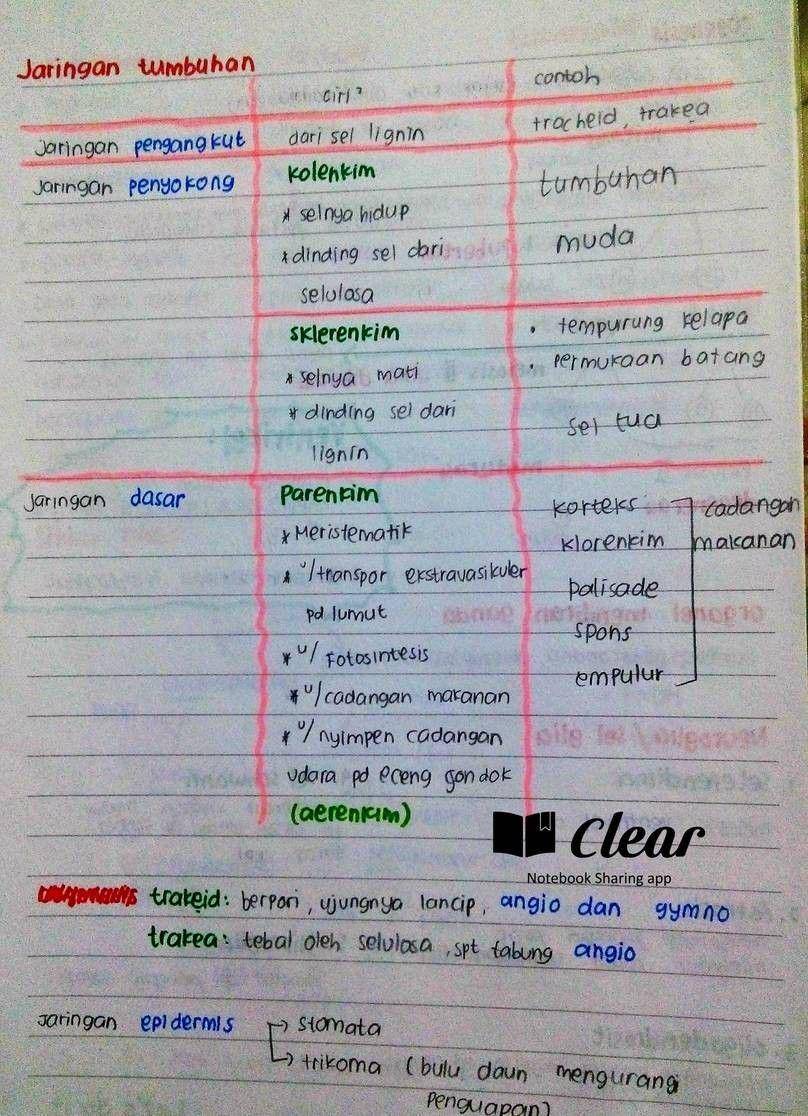 Jaringan tumbuhan
ciri² contoh
Jaringan pengangkut dari sel lignin tracheid, trakea
Jaringan penyokong kolenkim tumbuhan
* selnya hidup
* dinding sel dari muda
selulosa
sklerenkim • tempurung kelapa
* selnya mati • permukaan batang
* dinding sel dari sel tua
lignin
Jaringan dasar parenkim korteks cadangan
* Meristematik klorenkim makanan
* u/transpor ekstravasikuler palisade
pd lumut spons
* u/ fotosintesis empulur
* u/cadangan makanan
* u/ nyimpen cadangan
udara pd eceng gondok
(aerenkim)
Clear
Notebook Sharing app
trakeid: berpori, ujungnya lancip, angio dan gymno
trakea: tebal oleh selulosa, spt tabung angio
Jaringan epidermis → stomata
→ trikoma (bulu daun mengurangi
penguapan)